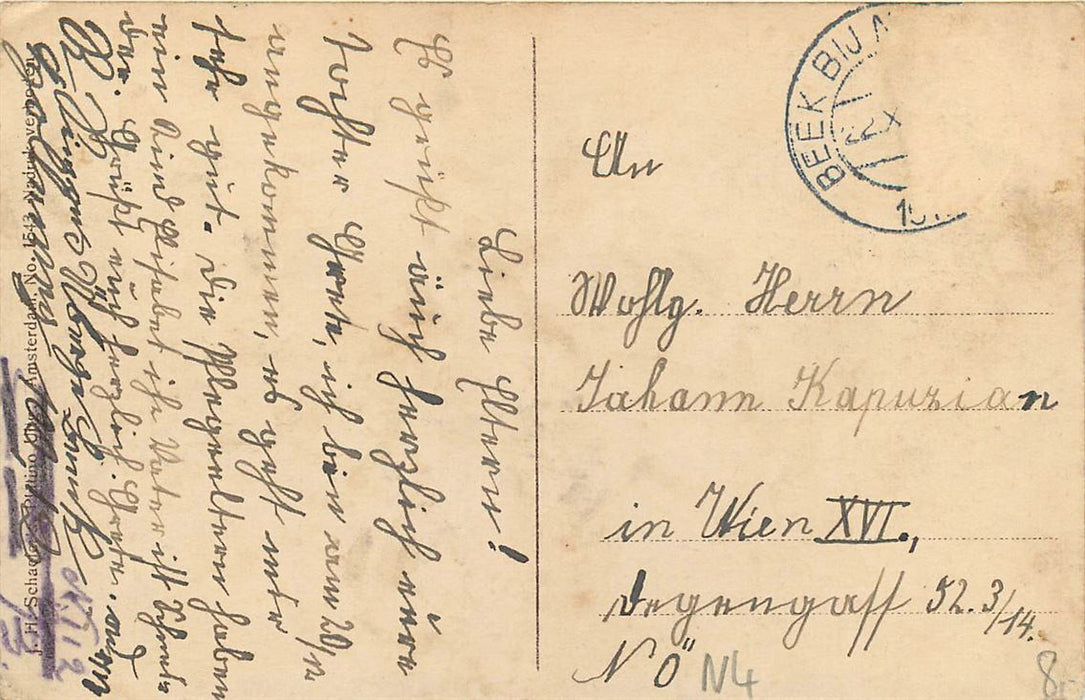 Liebe Eltern!
Es grüßt äuch herzlich eure
Tochter Grete, ich bin am 20/12
angekommen, es geht mir
sehr gut. Die Pflegeeltern haben
ein Kind Lisabet ihr Vater ist
der. Grüßt euch herzlich Grete.
An
Wohlg. Herrn
Johann Kapuzian
in Wien XVI.,
Degengass 52. 3/14.
N Ö
N4
8
BEEK BIJ
22.X
J. H. Schaefer's Platino Amsterdam. No. 1543 Nadruk verboden